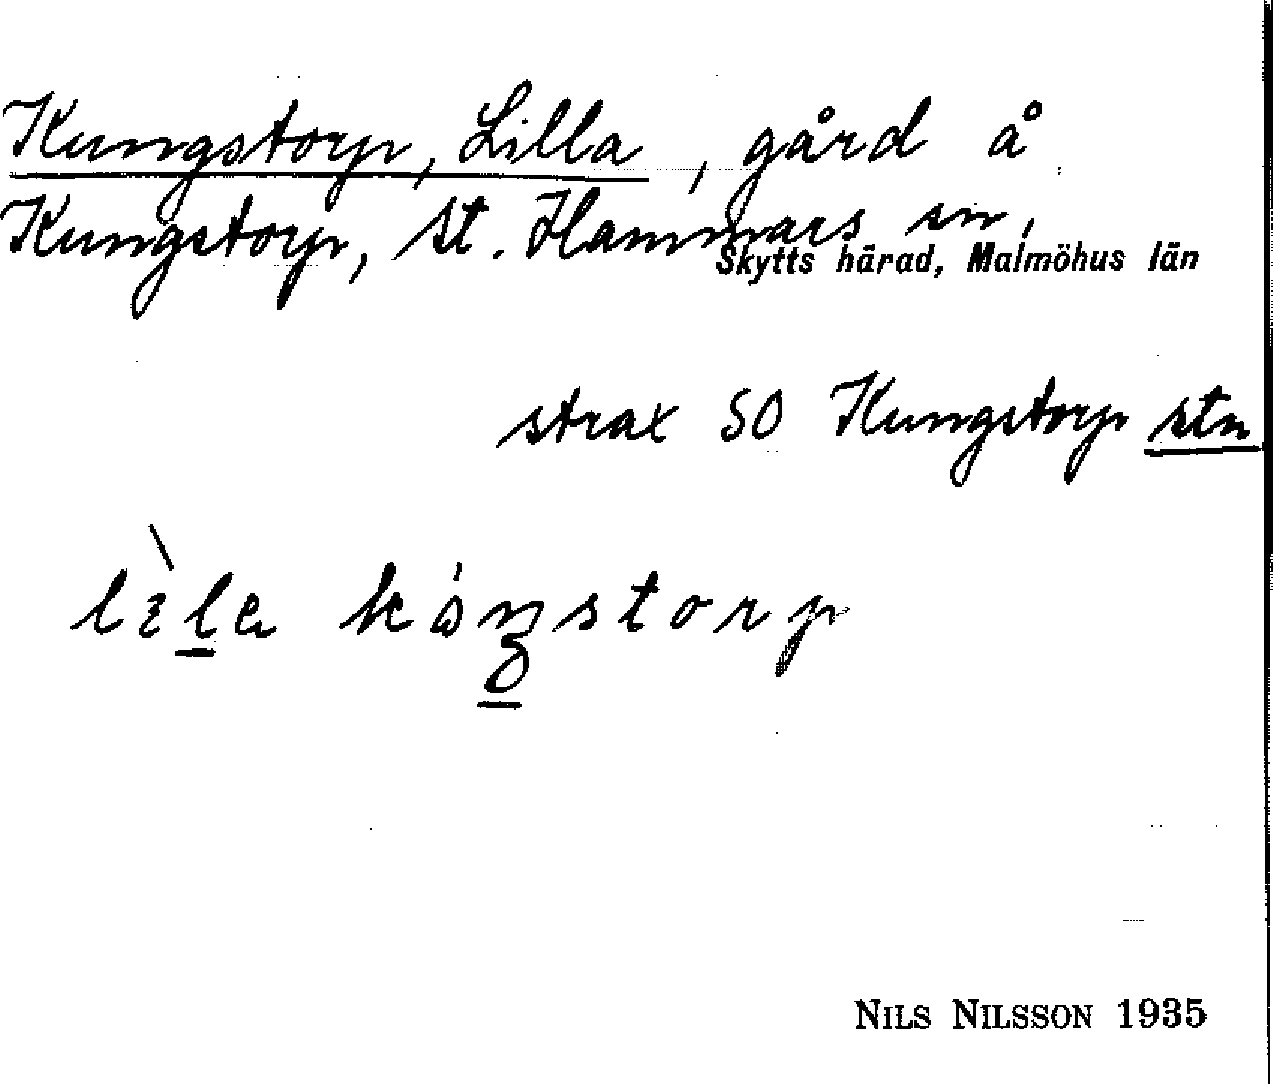 Kungstorp, Lilla, gård å
Kungstorp, St. Hammars sn,
Skytts härad, Malmöhus län
strax SO Kungstorp stn
NILS NILSSON 1935